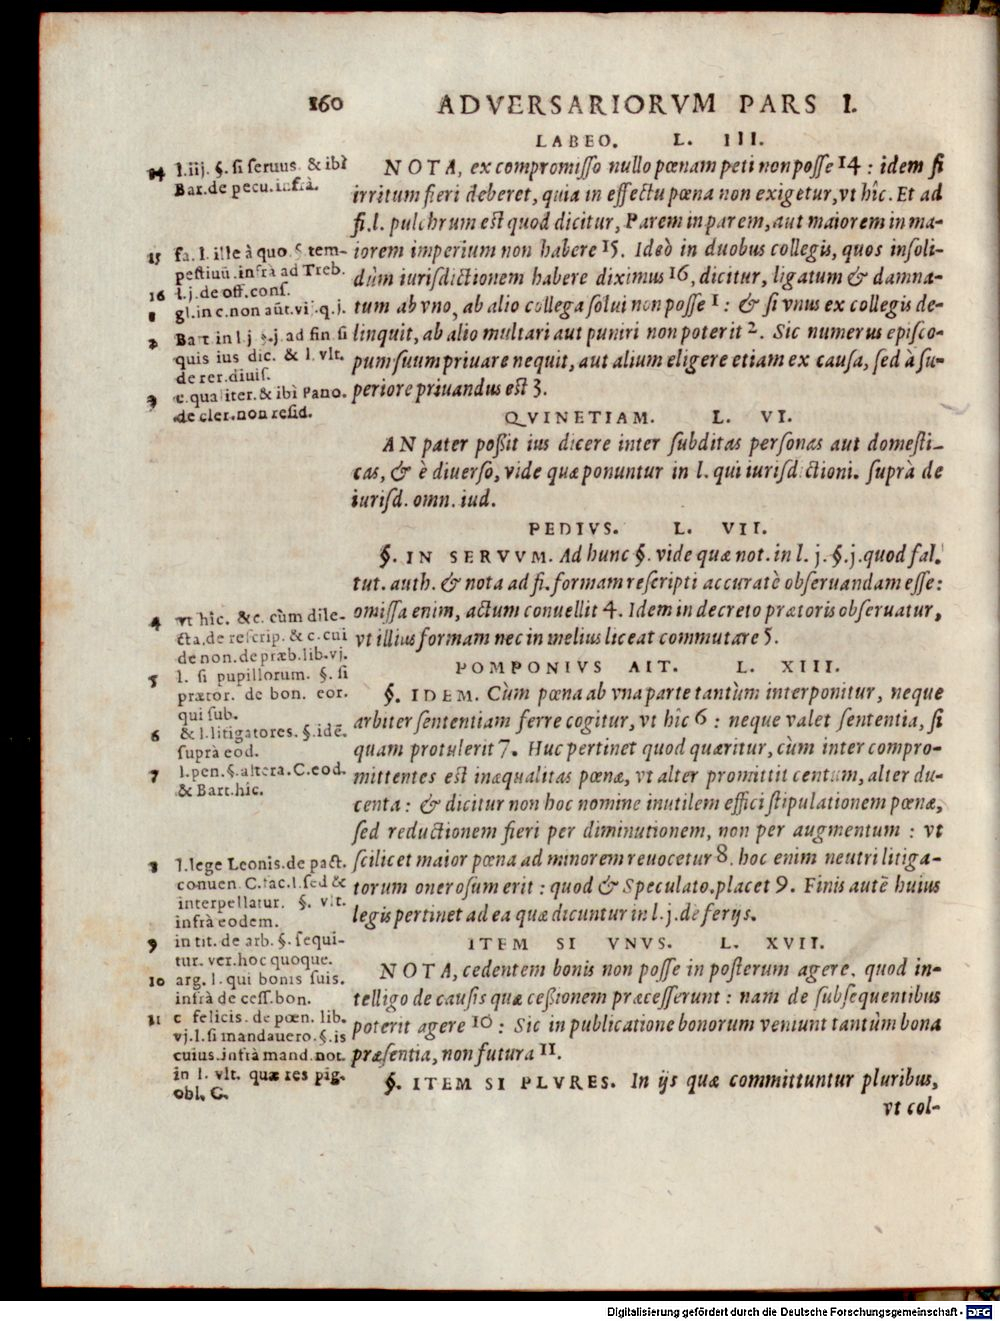 160 ADVERSARIORVM PARS I.
LABEO. L. III.
NOTA, ex compromisso nullo pœnam peti non posse 14 : idem si
irritum fieri deberet, quia in effectu pœna non exigetur, vt hîc. Et ad
fi. l. pulchrum est quod dicitur, Parem in parem, aut maiorem in ma-
iorem imperium non habere 15. Ideò in duobus collegis, quos insoli-
dùm iurisdictionem habere diximus 16, dicitur, ligatum & damna-
tum ab vno, ab alio collega solui non posse 1 : & si vnus ex collegis de-
linquit, ab alio multari aut puniri non poterit 2. Sic numerus episco-
pum suum priuare nequit, aut alium eligere etiam ex causa, sed à su-
periore priuandus est 3.
QVINETIAM. L. VI.
AN pater poßit ius dicere inter subditas personas aut domesti-
cas, & è diuerso, vide quæ ponuntur in l. qui iurisdictioni. suprà de
iurisd. omn. iud.
PEDIVS. L. VII.
§. IN SERVVM. Ad hunc §. vide quæ not. in l. j. §. j. quod fal.
tut. auth. & nota ad fi. formam rescripti accuratè obseruandam esse:
omissa enim, actum conuellit 4. Idem in decreto prætoris obseruatur,
vt illius formam nec in melius liceat commutare 5.
POMPONIVS AIT. L. XIII.
§. IDEM. Cùm pœna ab vna parte tantùm interponitur, neque
arbiter sententiam ferre cogitur, vt hîc 6 : neque valet sententia, si
quam protulerit 7. Huc pertinet quod quæritur, cùm inter compro-
mittentes est inæqualitas pœnæ, vt alter promittit centum, alter du-
centa : & dicitur non hoc nomine inutilem effici stipulationem pœnæ,
sed reductionem fieri per diminutionem, non per augmentum : vt
scilicet maior pœna ad minorem reuocetur 8. hoc enim neutri litiga-
torum onerosum erit : quod & Speculato. placet 9. Finis autē huius
legis pertinet ad ea quæ dicuntur in l. j. de ferijs.
ITEM SI VNVS. L. XVII.
NOTA, cedentem bonis non posse in posterum agere. quod in-
telligo de causis quæ ceßionem præcesserunt : nam de subsequentibus
poterit agere 10 : Sic in publicatione bonorum veniunt tantùm bona
præsentia, non futura 11.
§. ITEM SI PLVRES. In ijs quæ committuntur pluribus,
vt col-
14 l. iij. §. si seruus. & ibi
Bar. de pecu. infrà.
15 fa. l. ille à quo. §. tem-
pestiuū. infrà ad Treb.
16 l. j. de off. cons.
1 gl. in c. non aūt. vij. q. j.
2 Bart. in l. j. §. j. ad fin. si
quis ius dic. & l. vlt.
de rer. diuis.
3 c. qualiter. & ibi Pano.
de cler. non resid.
4 vt hîc. & c. cùm dile-
cta. de rescrip. & c. cui
de non. de præb. lib. vj.
5 l. si pupillorum. §. si
prætor. de bon. eor.
qui sub.
6 & l. litigatores. §. idē.
suprà eod.
7 l. pen. §. altera. C. eod.
& Bart. hic.
8 l. lege Leonis. de pact.
conuen. C. fac. l. sed &
interpellatur. §. vlt.
infrà eodem.
9 in tit. de arb. §. sequi-
tur. ver. hoc quoque.
10 arg. l. qui bonis suis.
infrà de cess. bon.
11 c felicis. de pœn. lib.
vj. l. si mandauero. §. is
cuius. infrà mand. not.
in l. vlt. quæ res pig.
obl. C.
Digitalisierung gefördert durch die Deutsche Forschungsgemeinschaft - DFG